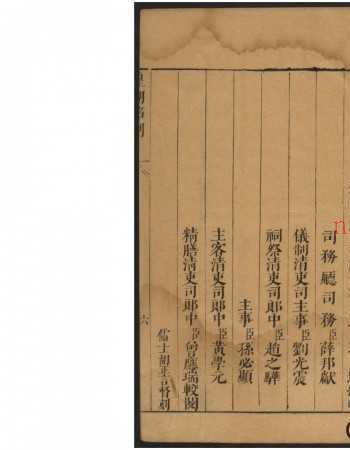 司務廳司務臣薛邦獻
儀制清吏司主事臣劉光震
祠祭清吏司郎中臣趙之驊
主事臣孫必顯
主客清吏司郎中臣黃學元
精膳清吏司郎中臣曾應瑞較閱
儒士
六